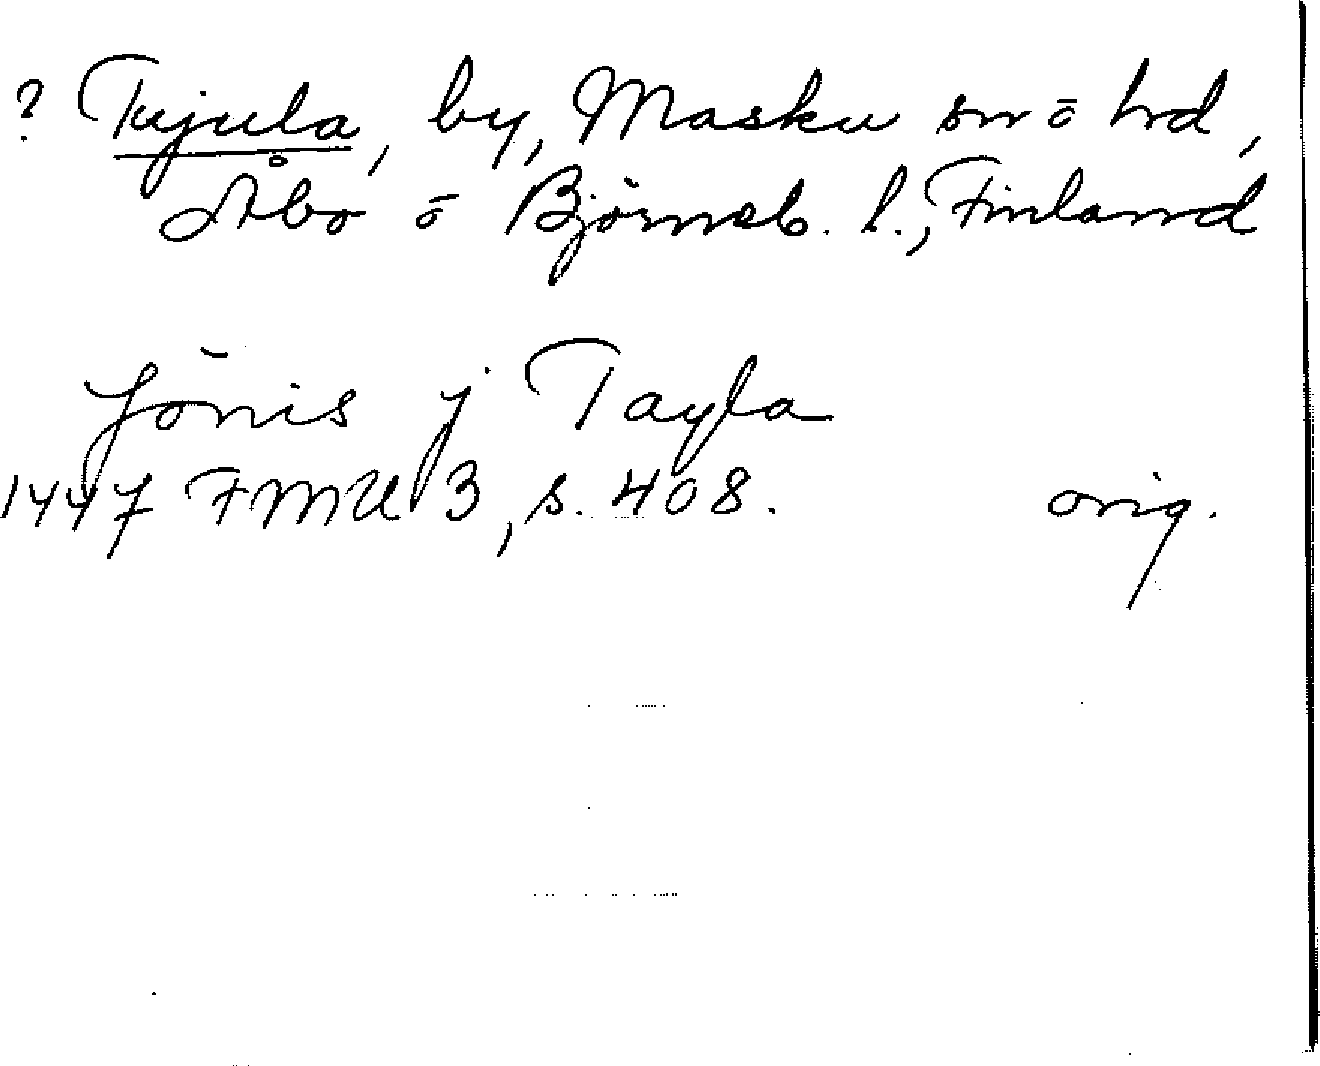 ? Tujula, by, Masku sn ō hd,
Åbo ō Björneb. l., Finland
Jönis j Tayla
1447 FMU 3, s. 408. orig.